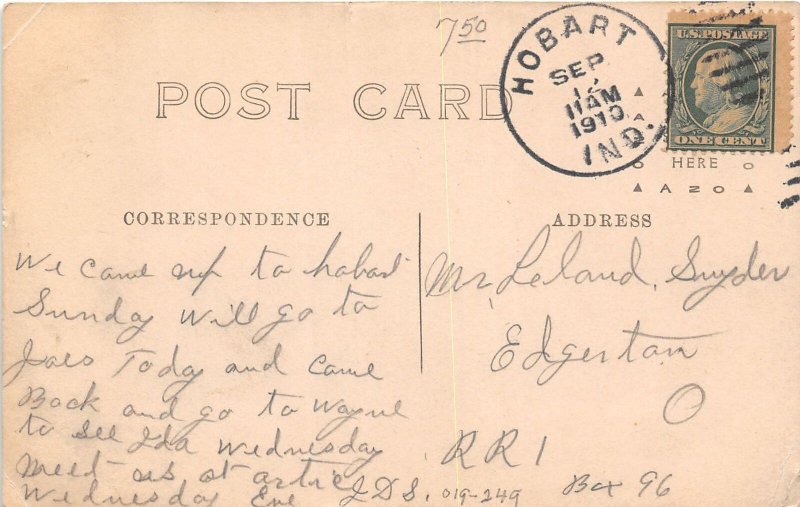 7.50
HOBART
SEP
12
11 AM
1910
IND.
U.S. POSTAGE
ONE CENT
POST CARD
HERE
A ZO
CORRESPONDENCE
ADDRESS
We came up to hobart
Sunday will go to
Joes Today and came
Back and go to Wayne
to see Ida Wednesday
meet us at
Wednesday Eve J.D.S.
Mr, Leland, Snyder
Edgerton
O
RR1
019-249
Box 96